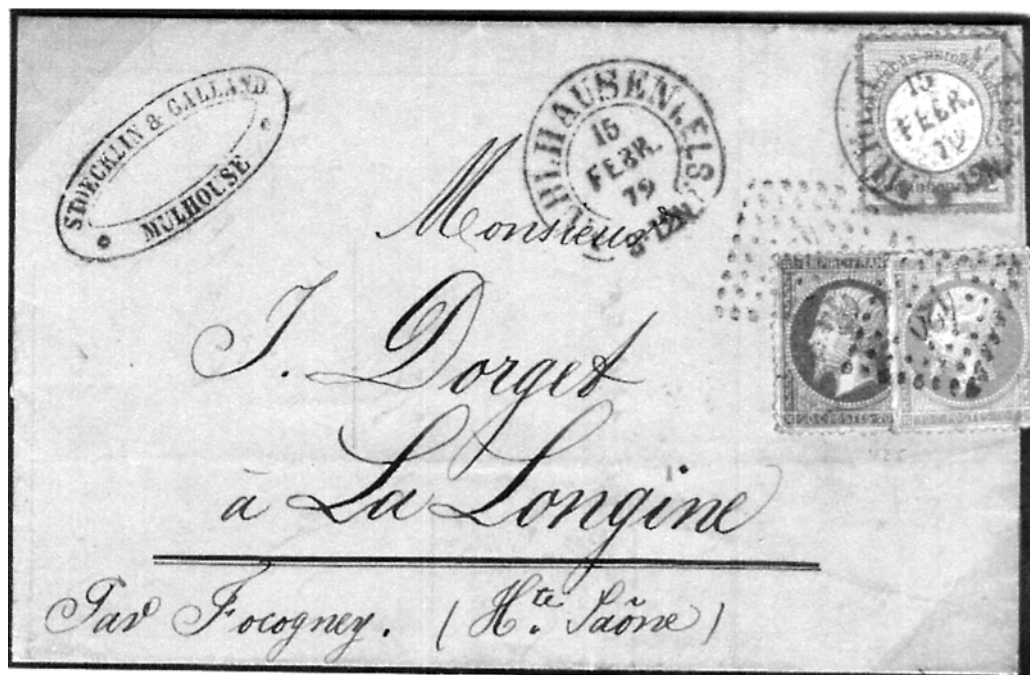 STOECKLIN & GALLAND
MULHOUSE
MÜHLHAUSEN i. ELS.
15
FEBR.
72
15
FEBR.
72
Monsieur
J. Dorget
à La Longine
Par Focogney. (Hte. Saône)